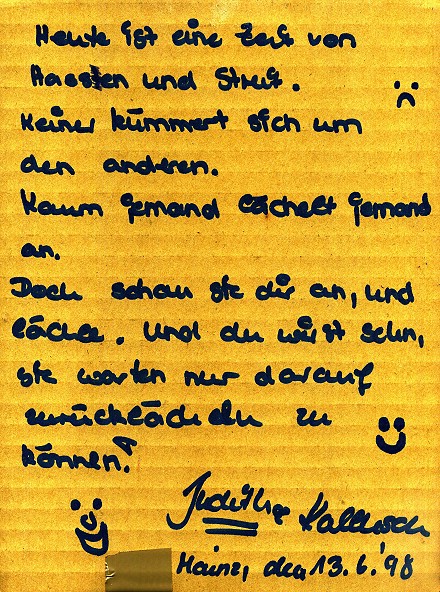 Heute ist eine Zeit von
Haasten und Streit.
Keiner kümmert sich um
den anderen.
Kaum jemand lächelt jemand
an.
Doch schau sie dir an, und
lächle. Und du wirst sehn,
sie warten nur darauf
zurücklächeln zu
können!
Kallusch
Mainz, den 13.6.'98